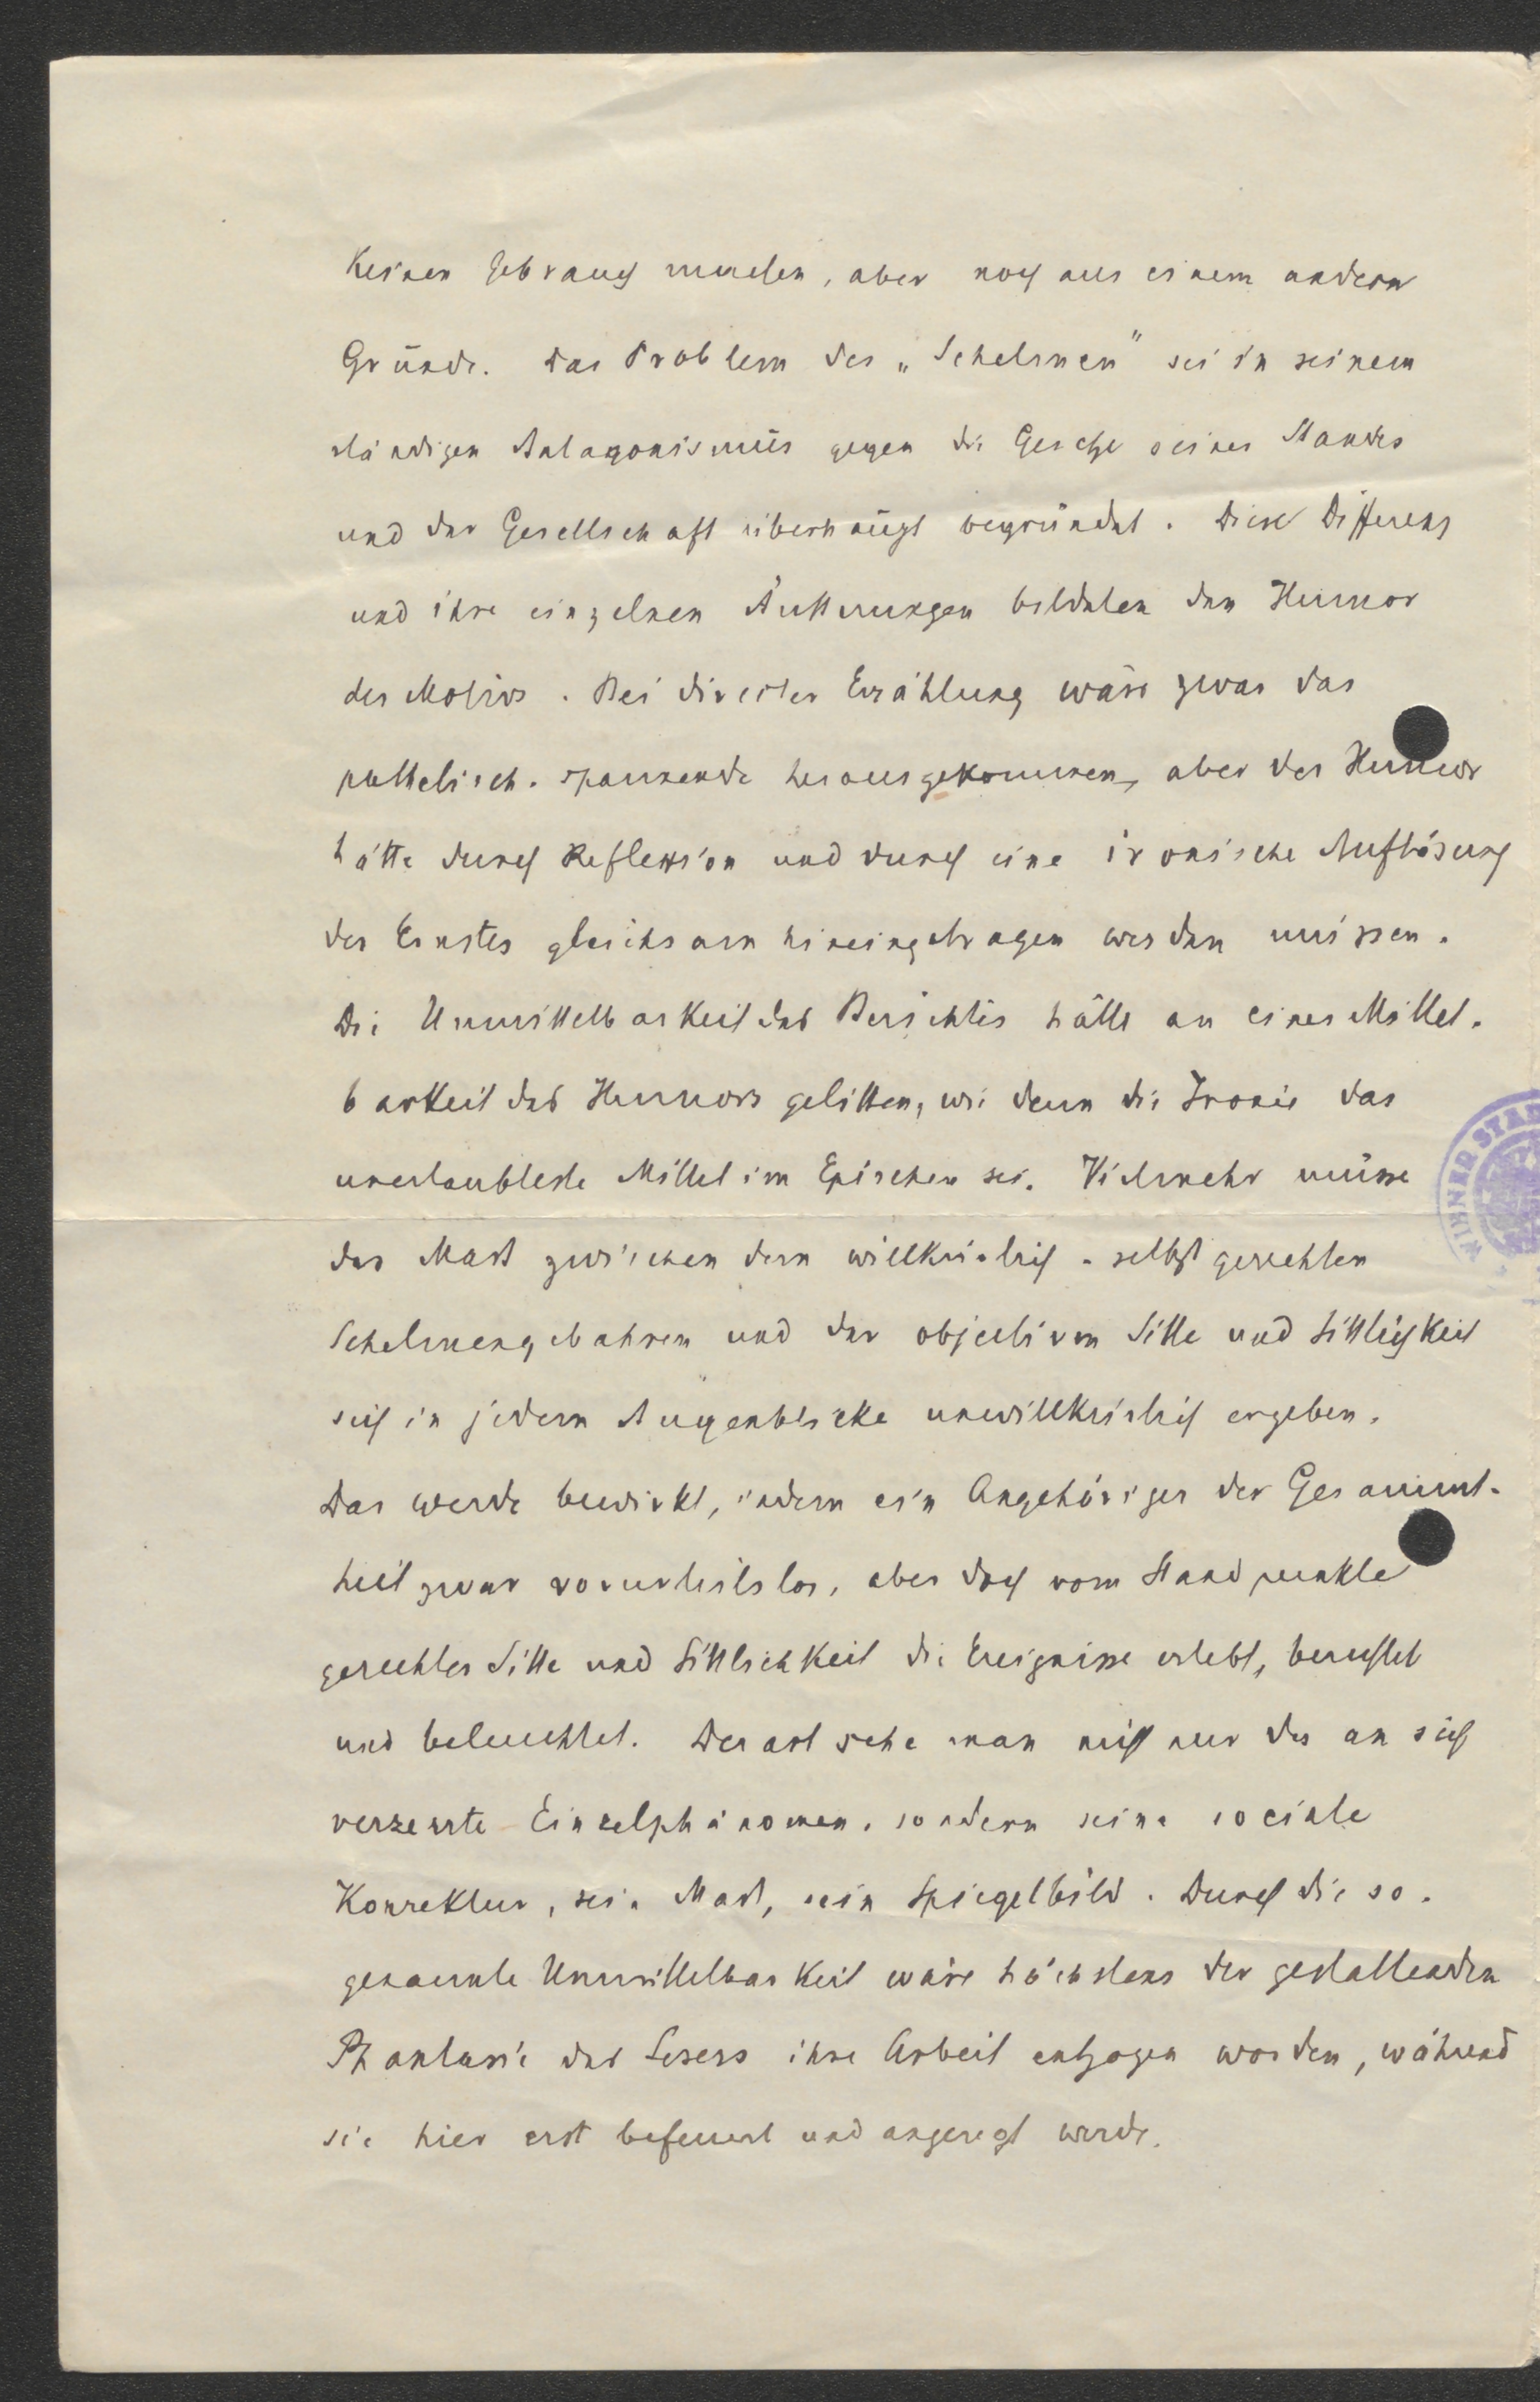 keinen Gebrauch machen, aber noch aus einem andern
Grunde. Das Problem des „Schelmen" sei in seinem
ständigen Antagonismus gegen die Gesetze seines Standes
und der Gesellschaft überhaupt begründet. Diese Differenz
und ihre einzelnen Äußerungen bildeten den Humor
des Motivs. Bei directer Erzählung wäre zwar das
pathetisch-spannende herausgekommen, aber der Humor
hätte durch Reflexion und durch eine ironische Auflösung
des Ernstes gleichsam hineingetragen werden müssen.
Die Unmittelbarkeit des Berichtes hätte an einer Mittel-
barkeit des Humors gelitten, wie denn die Ironie das
unerlaubteste Mittel im Epischen sei. Vielmehr müsse
das Maß zwischen dem willkürlich-selbstgerechten
Schelmengebahren und der objectiven Sitte und Sittlichkeit
sich in jedem Augenblicke unwillkürlich ergeben.
Das werde bewirkt, indem ein Angehöriger der Gesammt-
heit zwar vorurteilslos, aber doch vom Standpunkte
gerechter Sitte und Sittlichkeit die Ereignisse erlebt, berichtet
und beleuchtet. Derart sehe man nicht nur das an sich
verzerrte Einzelphänomen, sondern seine sociale
Korrektur, sein Maß, sein Spiegelbild. Durch die so-
genannte Unmittelbarkeit wäre höchstens der gestaltenden
Phantasie des Lesers ihre Arbeit entzogen worden, während
sie hier erst befeuert und angeregt werde.
WIENER STAD